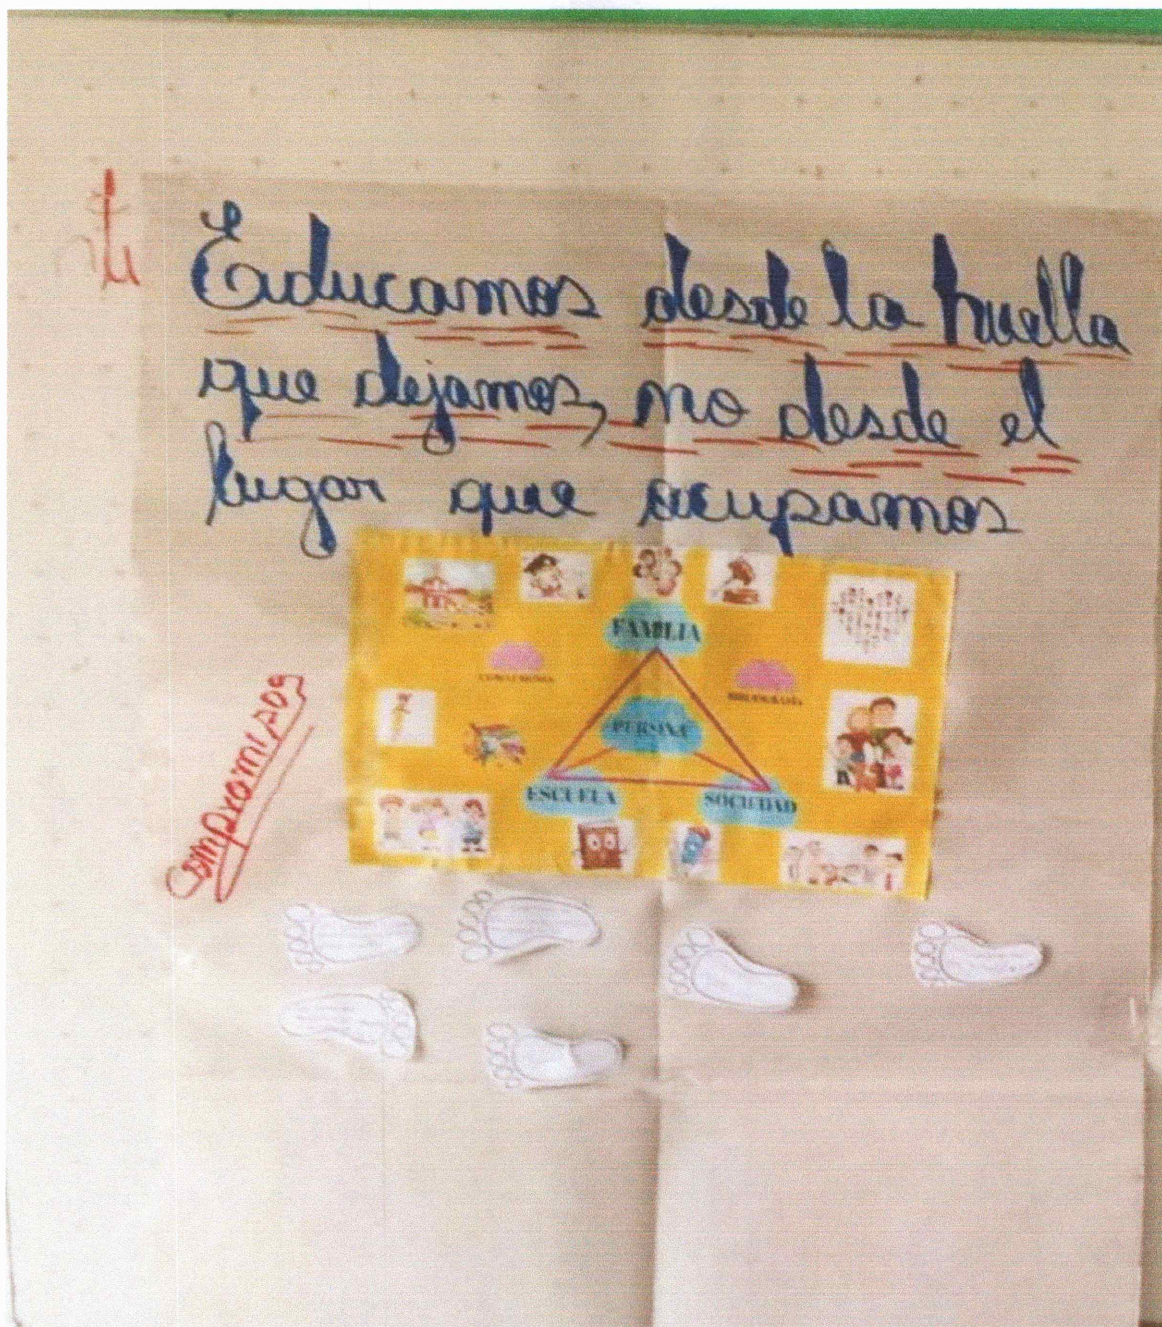 Educamos desde la huella
que dejamos, no desde el
lugar que ocupamos
FAMILIA
PERSONA
ESCUELA
SOCIEDAD
Compromisos